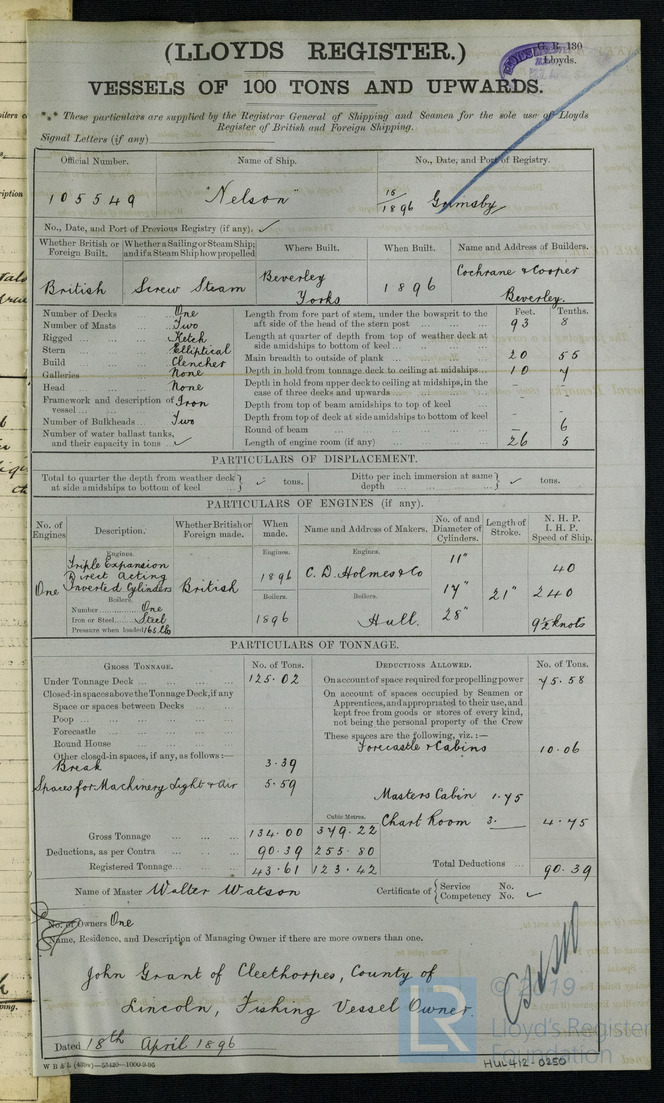 (LLOYDS REGISTER.)
G. R. 130
Lloyds.
VESSELS OF 100 TONS AND UPWARDS.
*** These particulars are supplied by the Registrar General of Shipping and Seamen for the sole use of Lloyds
Register of British and Foreign Shipping.
Signal Letters (if any)
Official Number. Name of Ship. No., Date, and Port of Registry.
105549 "Nelson" 15/1896 Grimsby
No., Date, and Port of Previous Registry (if any). ✓
Whether British or Foreign Built. Whether a Sailing or Steam Ship; and if a Steam Ship how propelled Where Built. When Built. Name and Address of Builders.
British Screw Steam Beverley Yorks 1896 Cochrane & Cooper Beverley.
Feet. Tenths.
Number of Decks ... One
Number of Masts ... Two
Rigged ... Ketch
Stern ... Elliptical
Build ... Clencher
Galleries ... None
Head ... None
Framework and description of vessel ... Iron
Number of Bulkheads ... Two
Number of water ballast tanks, and their capacity in tons ... ✓
Length from fore part of stem, under the bowsprit to the aft side of the head of the stern post ... 93 8
Length at quarter of depth from top of weather deck at side amidships to bottom of keel ...
Main breadth to outside of plank ... 20 55
Depth in hold from tonnage deck to ceiling at midships... 10 7
Depth in hold from upper deck to ceiling at midships, in the case of three decks and upwards ... - -
Depth from top of beam amidships to top of keel ...
Depth from top of deck at side amidships to bottom of keel
Round of beam ... - 6
Length of engine room (if any) ... 26 5
PARTICULARS OF DISPLACEMENT.
Total to quarter the depth from weather deck at side amidships to bottom of keel ... ✓ tons. Ditto per inch immersion at same depth ... ✓ tons.
PARTICULARS OF ENGINES (if any).
No. of Engines Description. Whether British or Foreign made. When made. Name and Address of Makers. No. of and Diameter of Cylinders. Length of Stroke. N. H. P. I. H. P. Speed of Ship.
Engines. Engines. Engines.
One Triple Expansion Direct Acting Inverted Cylinders British 1896 C. D. Holmes & Co 11" 17" 28" 21" 40 240 9½ knots
Boilers. Boilers. Boilers.
Number ... One
Iron or Steel ... Steel 1896 Hull.
Pressure when loaded 165 lb
PARTICULARS OF TONNAGE.
GROSS TONNAGE. No. of Tons. DEDUCTIONS ALLOWED. No. of Tons.
Under Tonnage Deck ... 125.02
Closed-in spaces above the Tonnage Deck, if any
Space or spaces between Decks ...
Poop ...
Forecastle ...
Round House ...
Other closed-in spaces, if any, as follows:—
Break 3.39
Spaces for Machinery Light & Air 5.59
On account of space required for propelling power 75.58
On account of spaces occupied by Seamen or Apprentices, and appropriated to their use, and kept free from goods or stores of every kind, not being the personal property of the Crew
These spaces are the following, viz.:—
Forecastle & Cabins 10.06
Masters Cabin 1.75
Chart Room 3. 4.75
Cubic Metres.
Gross Tonnage ... 134.00 379.22
Deductions, as per Contra ... 90.39 255.80
Registered Tonnage... 43.61 123.42
Total Deductions ... 90.39
Name of Master Walter Watson Certificate of { Service No. Competency No. ✓
No. of Owners One
Name, Residence, and Description of Managing Owner if there are more owners than one.
John Grant of Cleethorpes, County of
Lincoln, Fishing Vessel Owner.
Dated 18th April 1896
© 2019
LR Lloyd's Register
Foundation
HUL412-0250